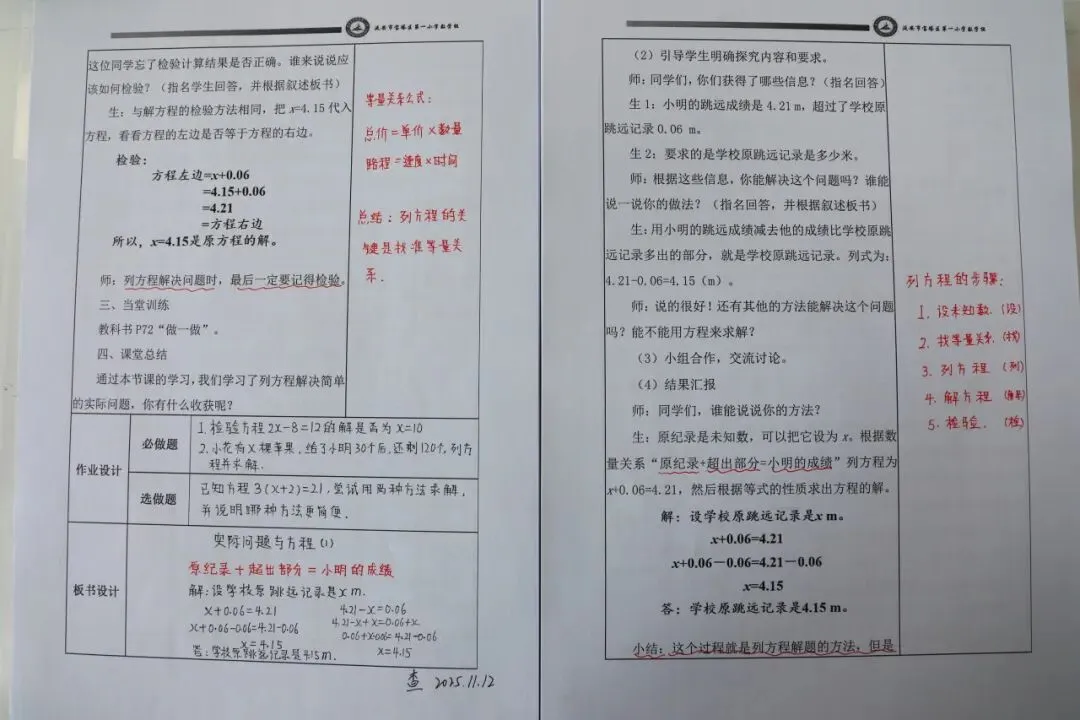 延安市宝塔区第一小学教学组
这位同学忘了检验计算结果是否正确。谁来说说应
该如何检验？（指名学生回答，并根据叙述板书）
生：与解方程的检验方法相同，把 x=4.15 代入
方程，看看方程的左边是否等于方程的右边。
检验：
方程左边=x+0.06
=4.15+0.06
=4.21
=方程右边
所以，x=4.15是原方程的解。
师：列方程解决问题时，最后一定要记得检验。
三、当堂训练
教科书 P72“做一做”。
四、课堂总结
通过本节课的学习，我们学习了列方程解决简单
的实际问题，你有什么收获呢？
等量关系公式：
总价=单价×数量
路程=速度×时间
总结：列方程的关
键是找准等量关
系.
作业设计
必做题
1.检验方程2x-8=12的解是否为x=10
2.小花有x棵苹果，给了小明30个后，还剩120个，列方
程并求解.
选做题
已知方程3(x+2)=21，尝试用两种方法求解，
并说明哪种方法更简便.
板书设计
实际问题与方程(1)
原纪录+超出部分=小明的成绩
解:设学校原跳远记录是x m.
x+0.06=4.21
x+0.06-0.06=4.21-0.06
x=4.15
答:学校原跳远记录是4.15m.
4.21-x=0.06
4.21-x+x=0.06+x
0.06+x-0.06=4.21-0.06
x=4.15
查 2025.11.12
延安市宝塔区第一小学数学组
（2）引导学生明确探究内容和要求。
师：同学们，你们获得了哪些信息？（指名回答）
生1：小明的跳远成绩是 4.21 m，超过了学校原
跳远记录 0.06 m。
生2：要求的是学校原跳远记录是多少米。
师：根据这些信息，你能解决这个问题吗？谁能
说一说你的做法？（指名回答，并根据叙述板书）
生：用小明的跳远成绩减去他的成绩比学校原跳
远记录多出的部分，就是学校原跳远记录。列式为：
4.21-0.06=4.15（m）。
师：说的很好！还有其他的方法能解决这个问题
吗？能不能用方程来求解？
（3）小组合作，交流讨论。
（4）结果汇报
师：同学们，谁能说说你的方法？
生：原纪录是未知数，可以把它设为 x。根据数
量关系“原纪录+超出部分=小明的成绩”列方程为
x+0.06=4.21，然后根据等式的性质求出方程的解。
解：设学校原跳远记录是x m。
x+0.06=4.21
x+0.06－0.06=4.21－0.06
x=4.15
答：学校原跳远记录是4.15 m。
小结：这个过程就是列方程解题的方法，但是
列方程的步骤：
1. 设未知数.（设）
2. 找等量关系.（找）
3. 列方程（列）
4. 解方程（解）
5. 检验.（检）